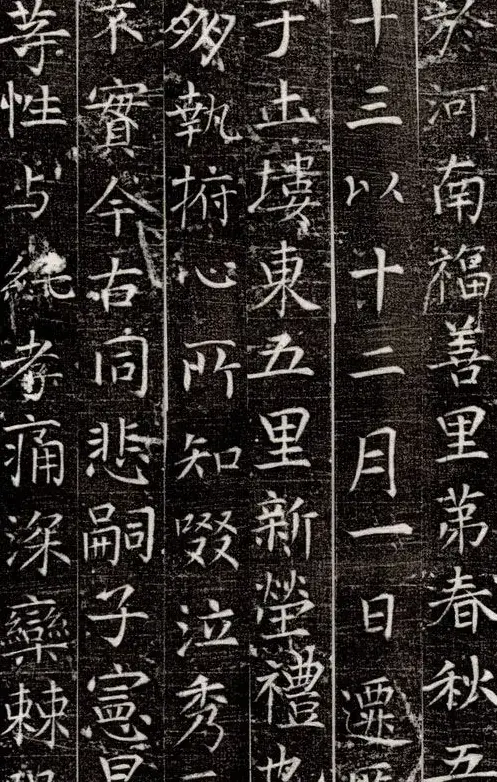 於河南福善里苐春秋五
十三以十二月一日遷
于土塿東五里新塋禮也
執拊心所知啜泣秀
實今古同悲嗣子寔
性与純孝痛深欒棘